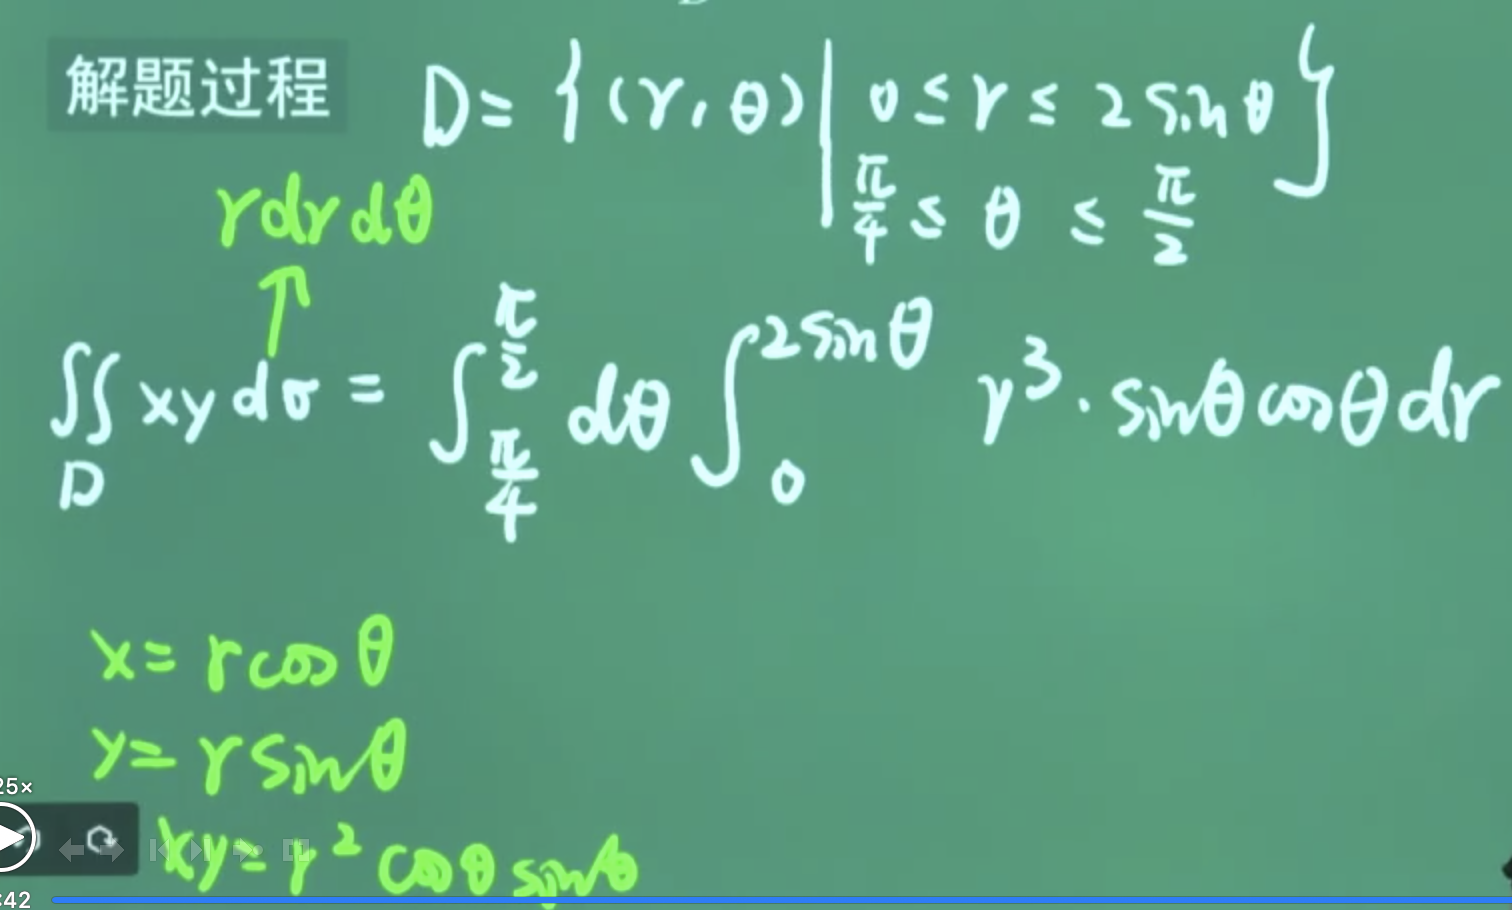 解题过程 D = {(r, θ) | 0 ≤ r ≤ 2 sin θ }
π/4 ≤ θ ≤ π/2
r dr dθ
↑
∬_D xy dσ = ∫_{π/4}^{π/2} dθ ∫_0^{2 sin θ} r³ · sin θ cos θ dr
x = r cos θ
y = r sin θ
25×
xy = r² cos θ sin θ
:42